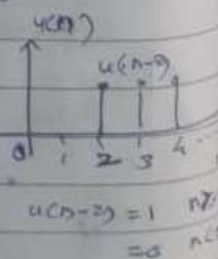 u(n)
u(n-2)
0 1 2 3 4
u(n-2) = 1 n≥
= 0 n<